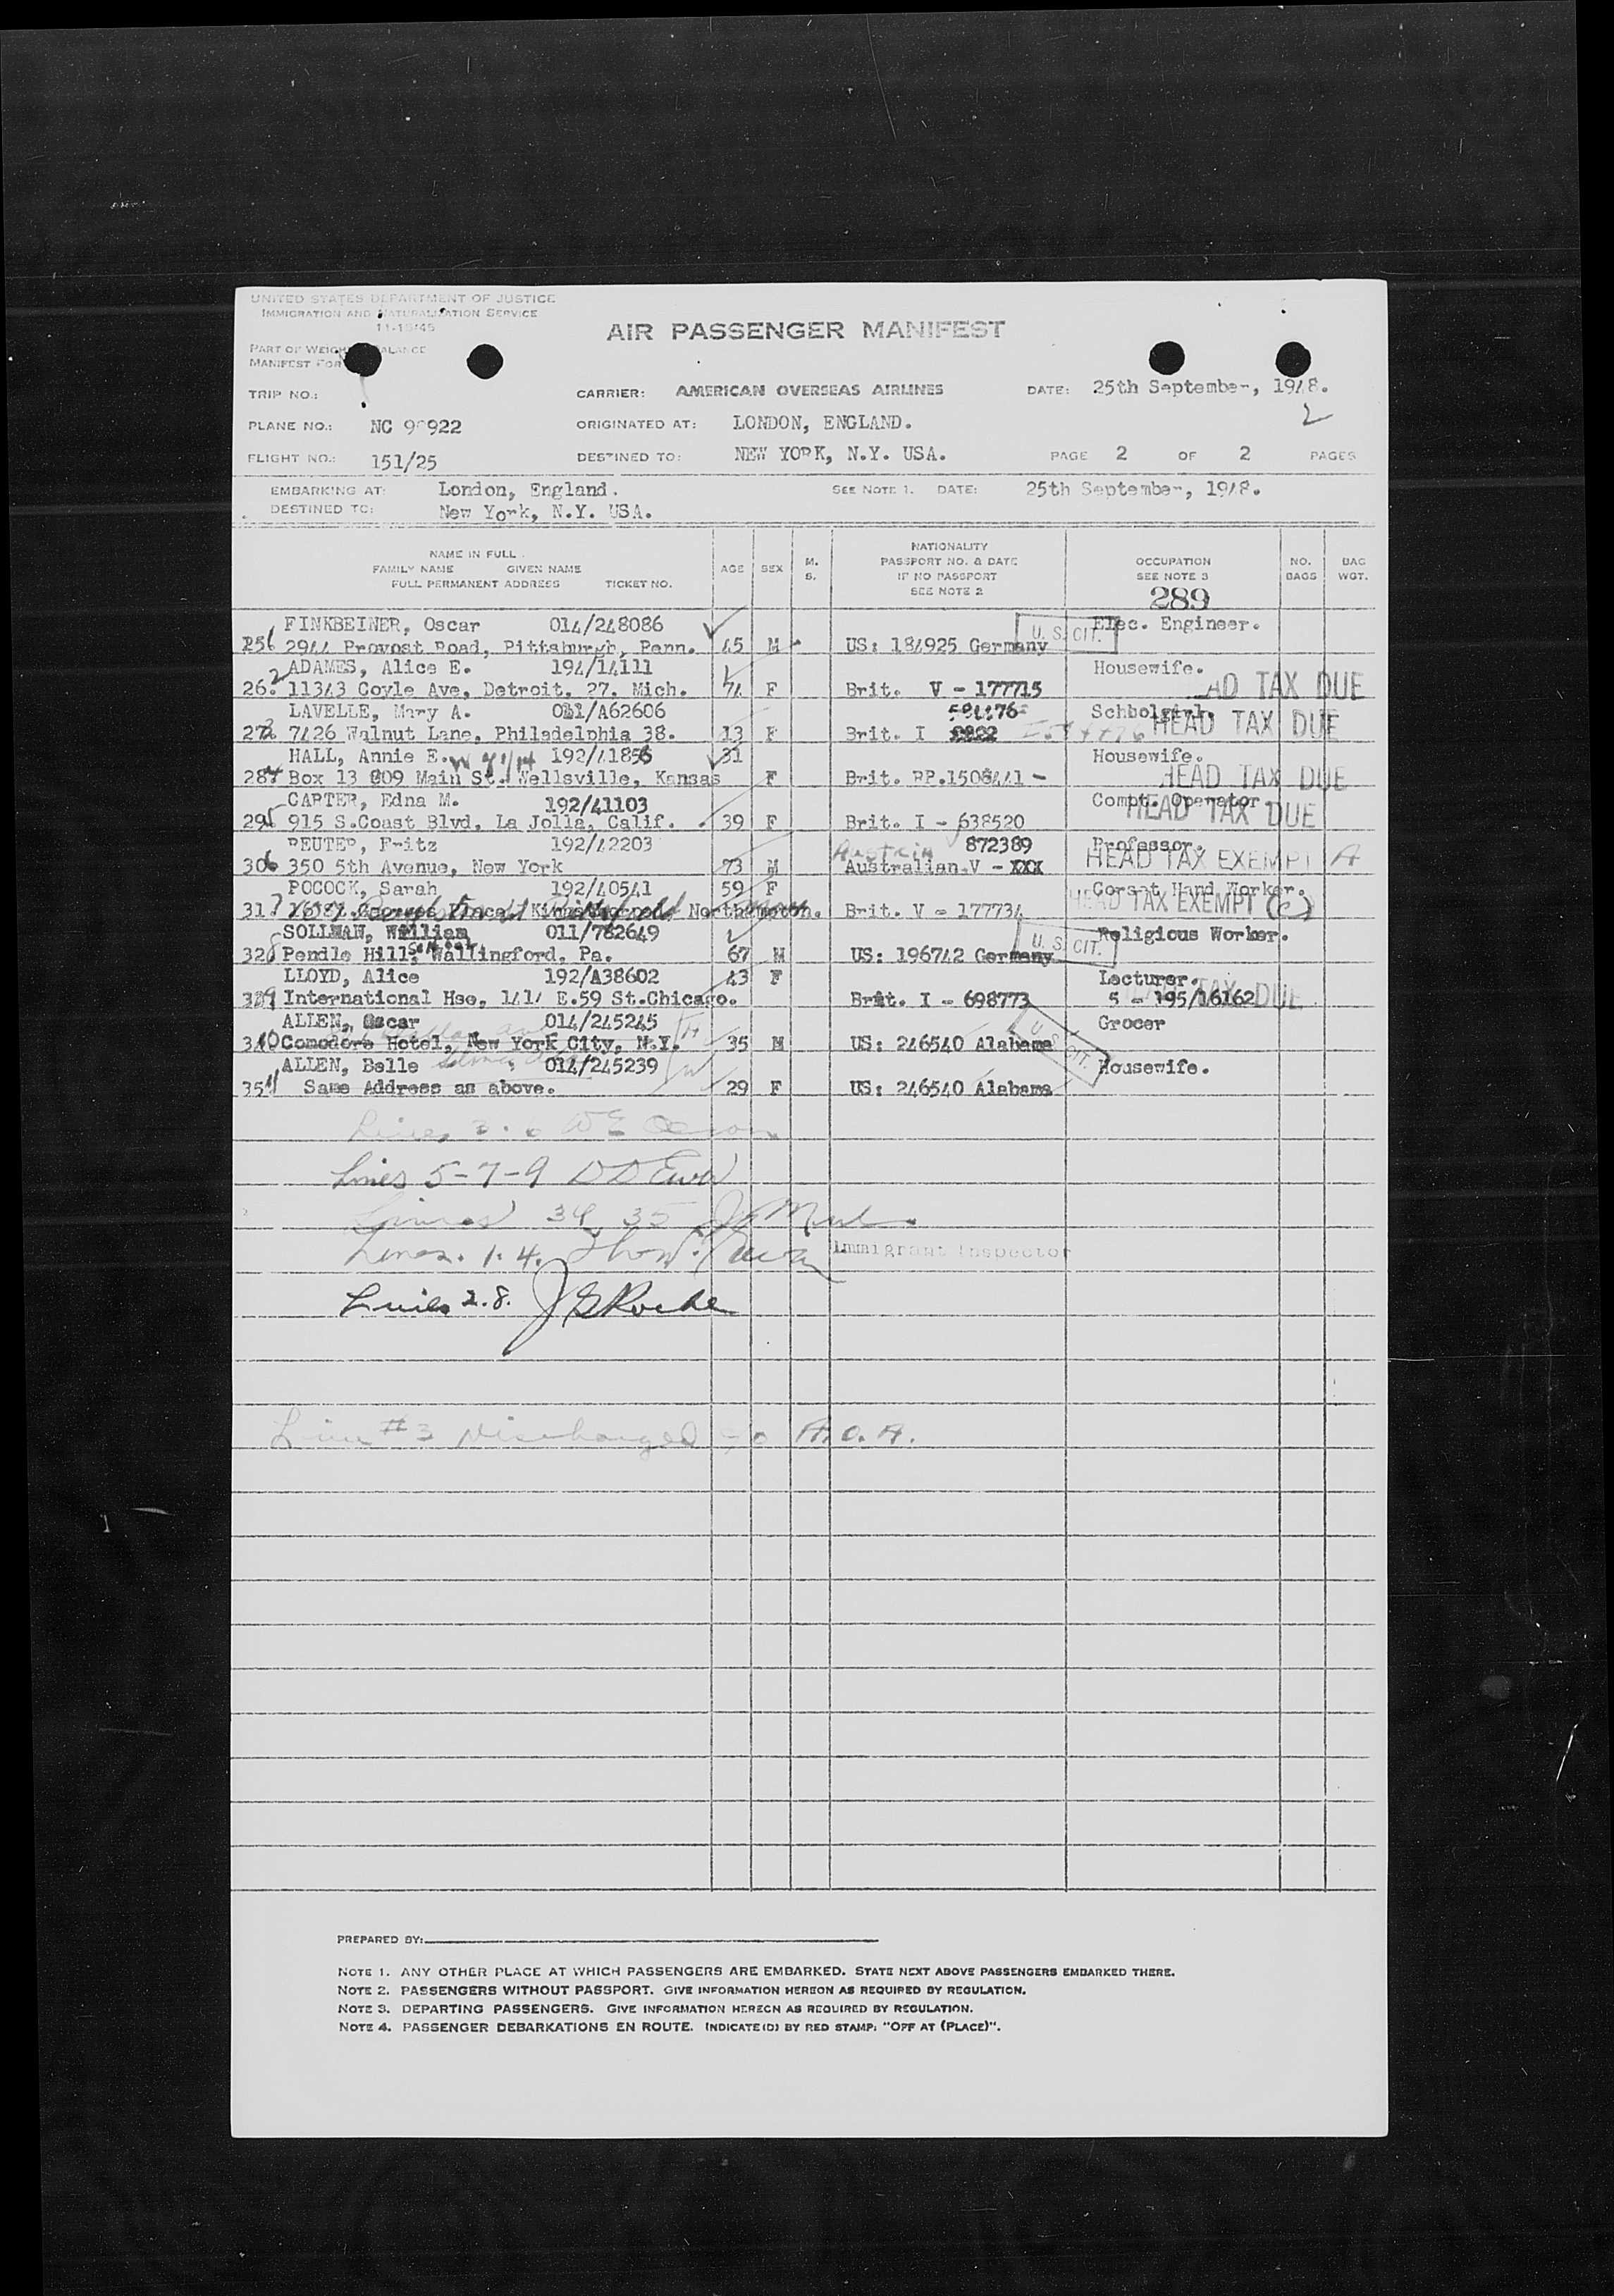 UNITED STATES DEPARTMENT OF JUSTICE
IMMIGRATION AND NATURALIZATION SERVICE
11-15-45
AIR PASSENGER MANIFEST
PART OF WEIGHT BALANCE
MANIFEST FOR
TRIP NO.: CARRIER: AMERICAN OVERSEAS AIRLINES DATE: 25th September, 1948.
2
PLANE NO.: NC 90922 ORIGINATED AT: LONDON, ENGLAND.
FLIGHT NO.: 151/25 DESTINED TO: NEW YORK, N.Y. USA. PAGE 2 OF 2 PAGES
EMBARKING AT: London, England. SEE NOTE 1. DATE: 25th September, 1948.
DESTINED TO: New York, N.Y. USA.
NAME IN FULL
FAMILY NAME GIVEN NAME
FULL PERMANENT ADDRESS TICKET NO.
AGE SEX M. S.
NATIONALITY
PASSPORT NO. & DATE
IF NO PASSPORT
SEE NOTE 2
OCCUPATION
SEE NOTE 3
NO. BAGS
BAG WGT.
289
FINKBEINER, Oscar 014/248086 U. S. CIT. Elec. Engineer.
25 2944 Provost Road, Pittsburgh, Penn. 45 M US: 184925 Germany
ADAMES, Alice E. 194/14111 Housewife.
26. 11343 Coyle Ave, Detroit, 27. Mich. 74 F Brit. V - 177715 AD TAX DUE
LAVELLE, Mary A. 011/A62606 Schoolgirl. HEAD TAX DUE
27 7426 Walnut Lane, Philadelphia 38. 13 F Brit. I
HALL, Annie E. 192/41856 31 Housewife.
28 Box 13 809 Main St. Wellsville, Kansas F Brit. PP.1508441 - HEAD TAX DUE
CARTER, Edna M. 192/41103 Compt. Operator. HEAD TAX DUE
29 915 S.Coast Blvd, La Jolla, Calif. 39 F Brit. I - 638520
REUTER, Fritz 192/42203 Austria 872389 Professor.
30 350 5th Avenue, New York 73 M Australian.V - XXX HEAD TAX EXEMPT A
POCOCK, Sarah 192/40541 59 F Corset Hand Worker.
31 Brit. V - 177734 HEAD TAX EXEMPT (C)
SOLLMAN, William 011/782649 U. S. CIT. Religious Worker.
32 Pendle Hill, Wallingford, Pa. 67 M US: 196742 Germany
LLOYD, Alice 192/A38602 43 F Lecturer.
33 International Hse, 1414 E.59 St.Chicago. Brit. I - 698773 5 - 195/16162 HEAD TAX DUE
ALLEN, Oscar 014/245245 Grocer
34 Comodore Hotel, New York City, N.Y. 35 M US: 246540 Alabama U. S. CIT.
ALLEN, Belle 014/245239 Housewife.
35 Same Address as above. 29 F US: 246540 Alabama
Lines 5-7-9
34, 35
Lines. 1. 4. Immigrant Inspector
Lines 2. 8. J G Roche
Line #3 Discharged to A.O.A.
PREPARED BY:
NOTE 1. ANY OTHER PLACE AT WHICH PASSENGERS ARE EMBARKED. STATE NEXT ABOVE PASSENGERS EMBARKED THERE.
NOTE 2. PASSENGERS WITHOUT PASSPORT. GIVE INFORMATION HEREON AS REQUIRED BY REGULATION.
NOTE 3. DEPARTING PASSENGERS. GIVE INFORMATION HEREON AS REQUIRED BY REGULATION.
NOTE 4. PASSENGER DEBARKATIONS EN ROUTE. INDICATE(D) BY RED STAMP: "OFF AT (PLACE)".